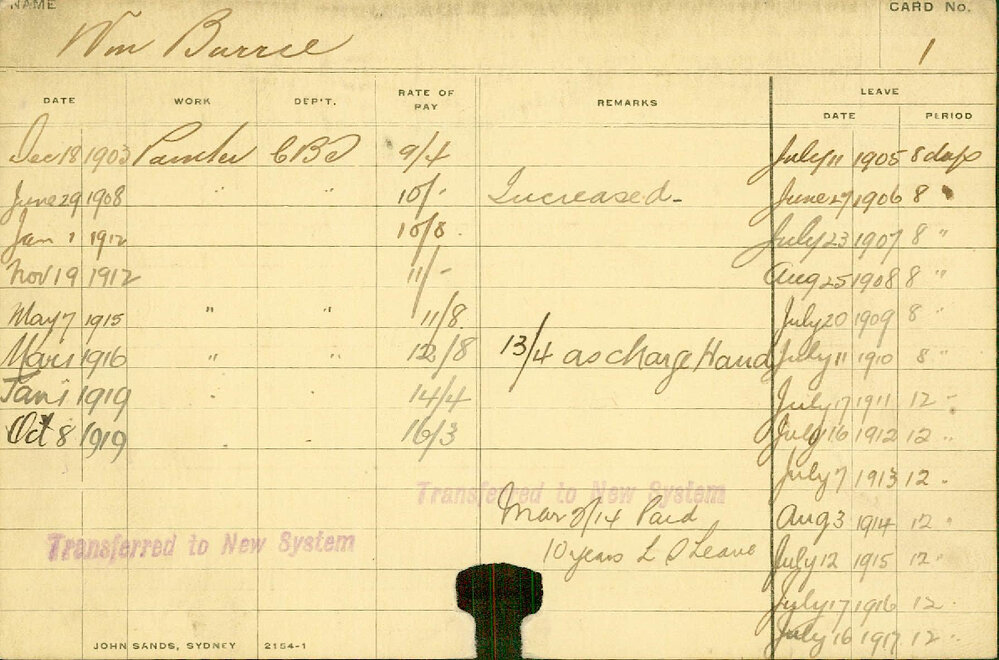 NAME
CARD No.
Wm Barrie
1
DATE WORK DEP'T. RATE OF PAY REMARKS LEAVE
DATE PERIOD
Dec 18 1903 Painter 9/4 July 11 1905 8 days
June 29 1908 " " 10/- Increased- June 27 1906 8 "
Jan 1 1912 10/8 July 23 1907 8 "
Nov 19 1912 11/- Aug 25 1908 8 "
May 7 1915 " " 11/8 July 20 1909 8 "
Mar 1 1916 " " 12/8 13/4 as charge Hand July 11 1910 8 "
Jan 1 1919 " " 14/4 July 17 1911 12 "
Oct 8 1919 " " 16/3 July 16 1912 12 "
July 7 1913 12 "
Transferred to New System
Mar /14 Paid Aug 3 1914 12 "
Transferred to New System
10 years L S Leave July 12 1915 12 "
July 17 1916 12 "
July 16 1917 12 "
JOHN SANDS, SYDNEY 2154-1